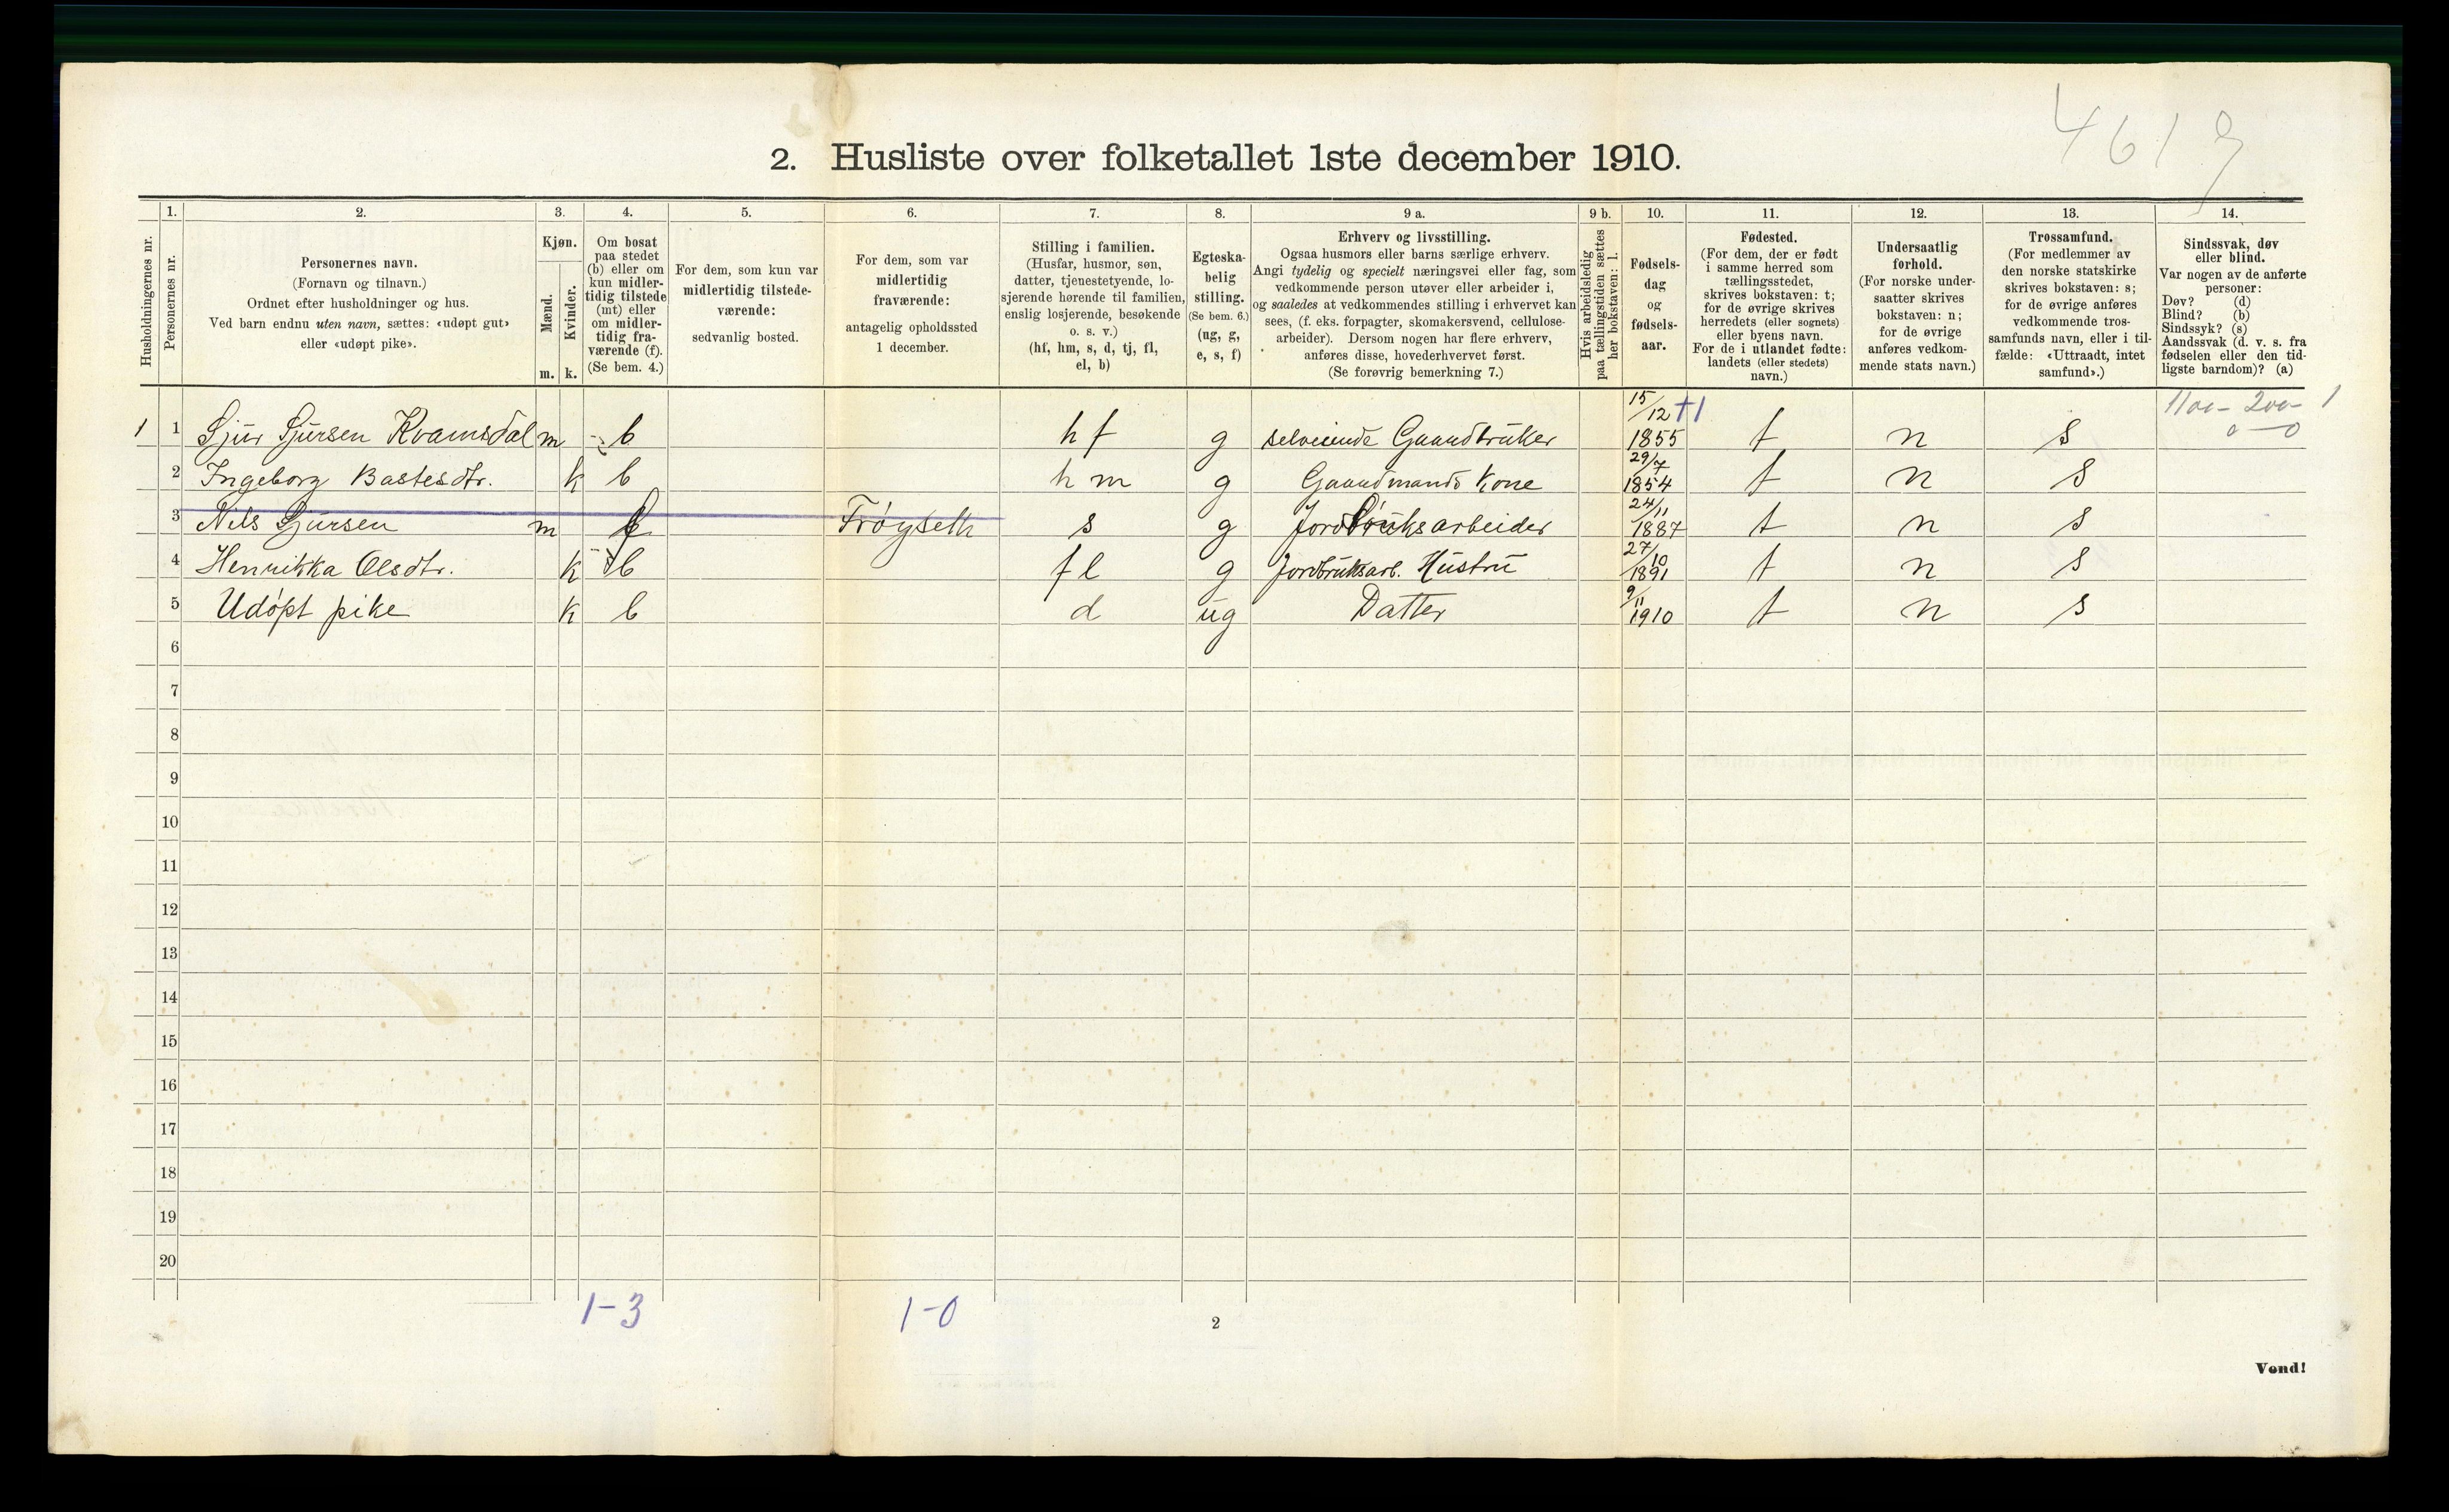 4619
2. Husliste over folketallet 1ste december 1910.
Husholdningernes nr.
1.
Personernes nr.
2.
Personernes navn.
(Fornavn og tilnavn.)
Ordnet efter husholdninger og hus.
Ved barn endnu uten navn, sættes: «udøpt gut»
eller «udøpt pike».
3.
Kjøn.
Mænd.
Kvinder.
m. k.
4.
Om bosat
paa stedet
(b) eller om
kun midler-
tidig tilstede
(mt) eller
om midler-
tidig fra-
værende (f).
(Se bem. 4.)
5.
For dem, som kun var
midlertidig tilstede-
værende:
sedvanlig bosted.
6.
For dem, som var
midlertidig
fraværende:
antagelig opholdssted
1 december.
7.
Stilling i familien.
(Husfar, husmor, søn,
datter, tjenestetyende, lo-
sjerende hørende til familien,
enslig losjerende, besøkende
o. s. v.)
(hf, hm, s, d, tj, fl,
el, b)
8.
Egteska-
belig
stilling.
(Se bem. 6.)
(ug, g,
e, s, f)
9 a.
Erhverv og livsstilling.
Ogsaa husmors eller barns særlige erhverv.
Angi tydelig og specielt næringsvei eller fag, som
vedkommende person utøver eller arbeider i,
og saaledes at vedkommendes stilling i erhvervet kan
sees, (f. eks. forpagter, skomakersvend, cellulose-
arbeider). Dersom nogen har flere erhverv,
anføres disse, hovederhvervet først.
(Se forøvrig bemerkning 7.)
9 b.
Hvis arbeidsledig
paa tællingstiden sættes
her bokstaven: l.
10.
Fødsels-
dag
og
fødsels-
aar.
11.
Fødested.
(For dem, der er født
i samme herred som
tællingsstedet,
skrives bokstaven: t;
for de øvrige skrives
herredets (eller sognets)
eller byens navn.
For de i utlandet fødte:
landets (eller stedets)
navn.)
12.
Undersaatlig
forhold.
(For norske under-
saatter skrives
bokstaven: n;
for de øvrige
anføres vedkom-
mende stats navn.)
13.
Trossamfund.
(For medlemmer av
den norske statskirke
skrives bokstaven: s;
for de øvrige anføres
vedkommende tros-
samfunds navn, eller i til-
fælde: «Uttraadt, intet
samfund».)
14.
Sindssvak, døv
eller blind.
Var nogen av de anførte
personer:
Døv? (d)
Blind? (b)
Sindssyk? (s)
Aandssvak (d. v. s. fra
fødselen eller den tid-
ligste barndom)? (a)
1100- 200- 1
0 — 0
1 1 Sjur Sjursen Kvamsdal m b hf g selveiende Gaardbruker 15/12 +1 1855 t n s
2 Ingeborg Bastesdtr. k b hm g Gaardmands Kone 29/7 1854 t n s
3 Nils Sjursen m f Frøyseth s g Jordbruksarbeider 24/11 1887 t n s
4 Henrikka Olsdtr. k b fl g Jordbruksarb. Hustru 27/10 1891 t n s
5 Udøpt pike k b d ug Datter 9/11 1910 t n s
6
7
8
9
10
11
12
13
14
15
16
17
18
19
20
1-3 1-0
2
Vend!